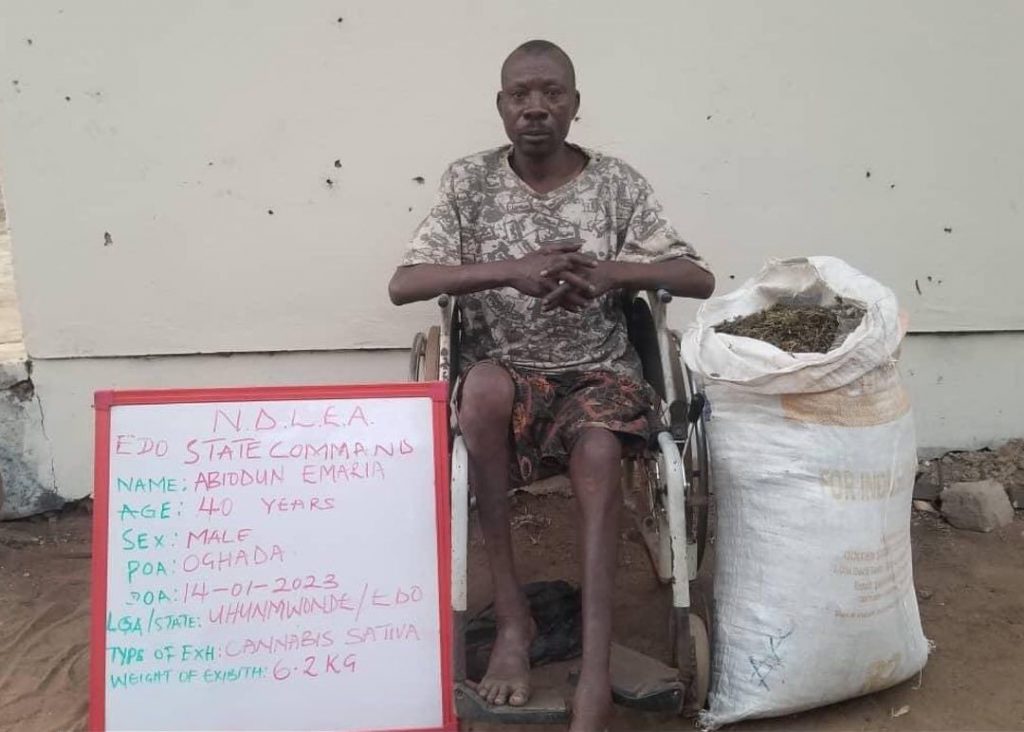 N.D.L.E.A.
EDO STATE COMMAND
NAME: ABIODUN EMARIA
AGE: 40 YEARS
SEX: MALE
POA: OGHADA
DOA: 14-01-2023
LGA/STATE: UHUNMWONDE/EDO
TYPE OF EXH: CANNABIS SATIVA
WEIGHT OF EXIBITH: 6.2 KG
FOR